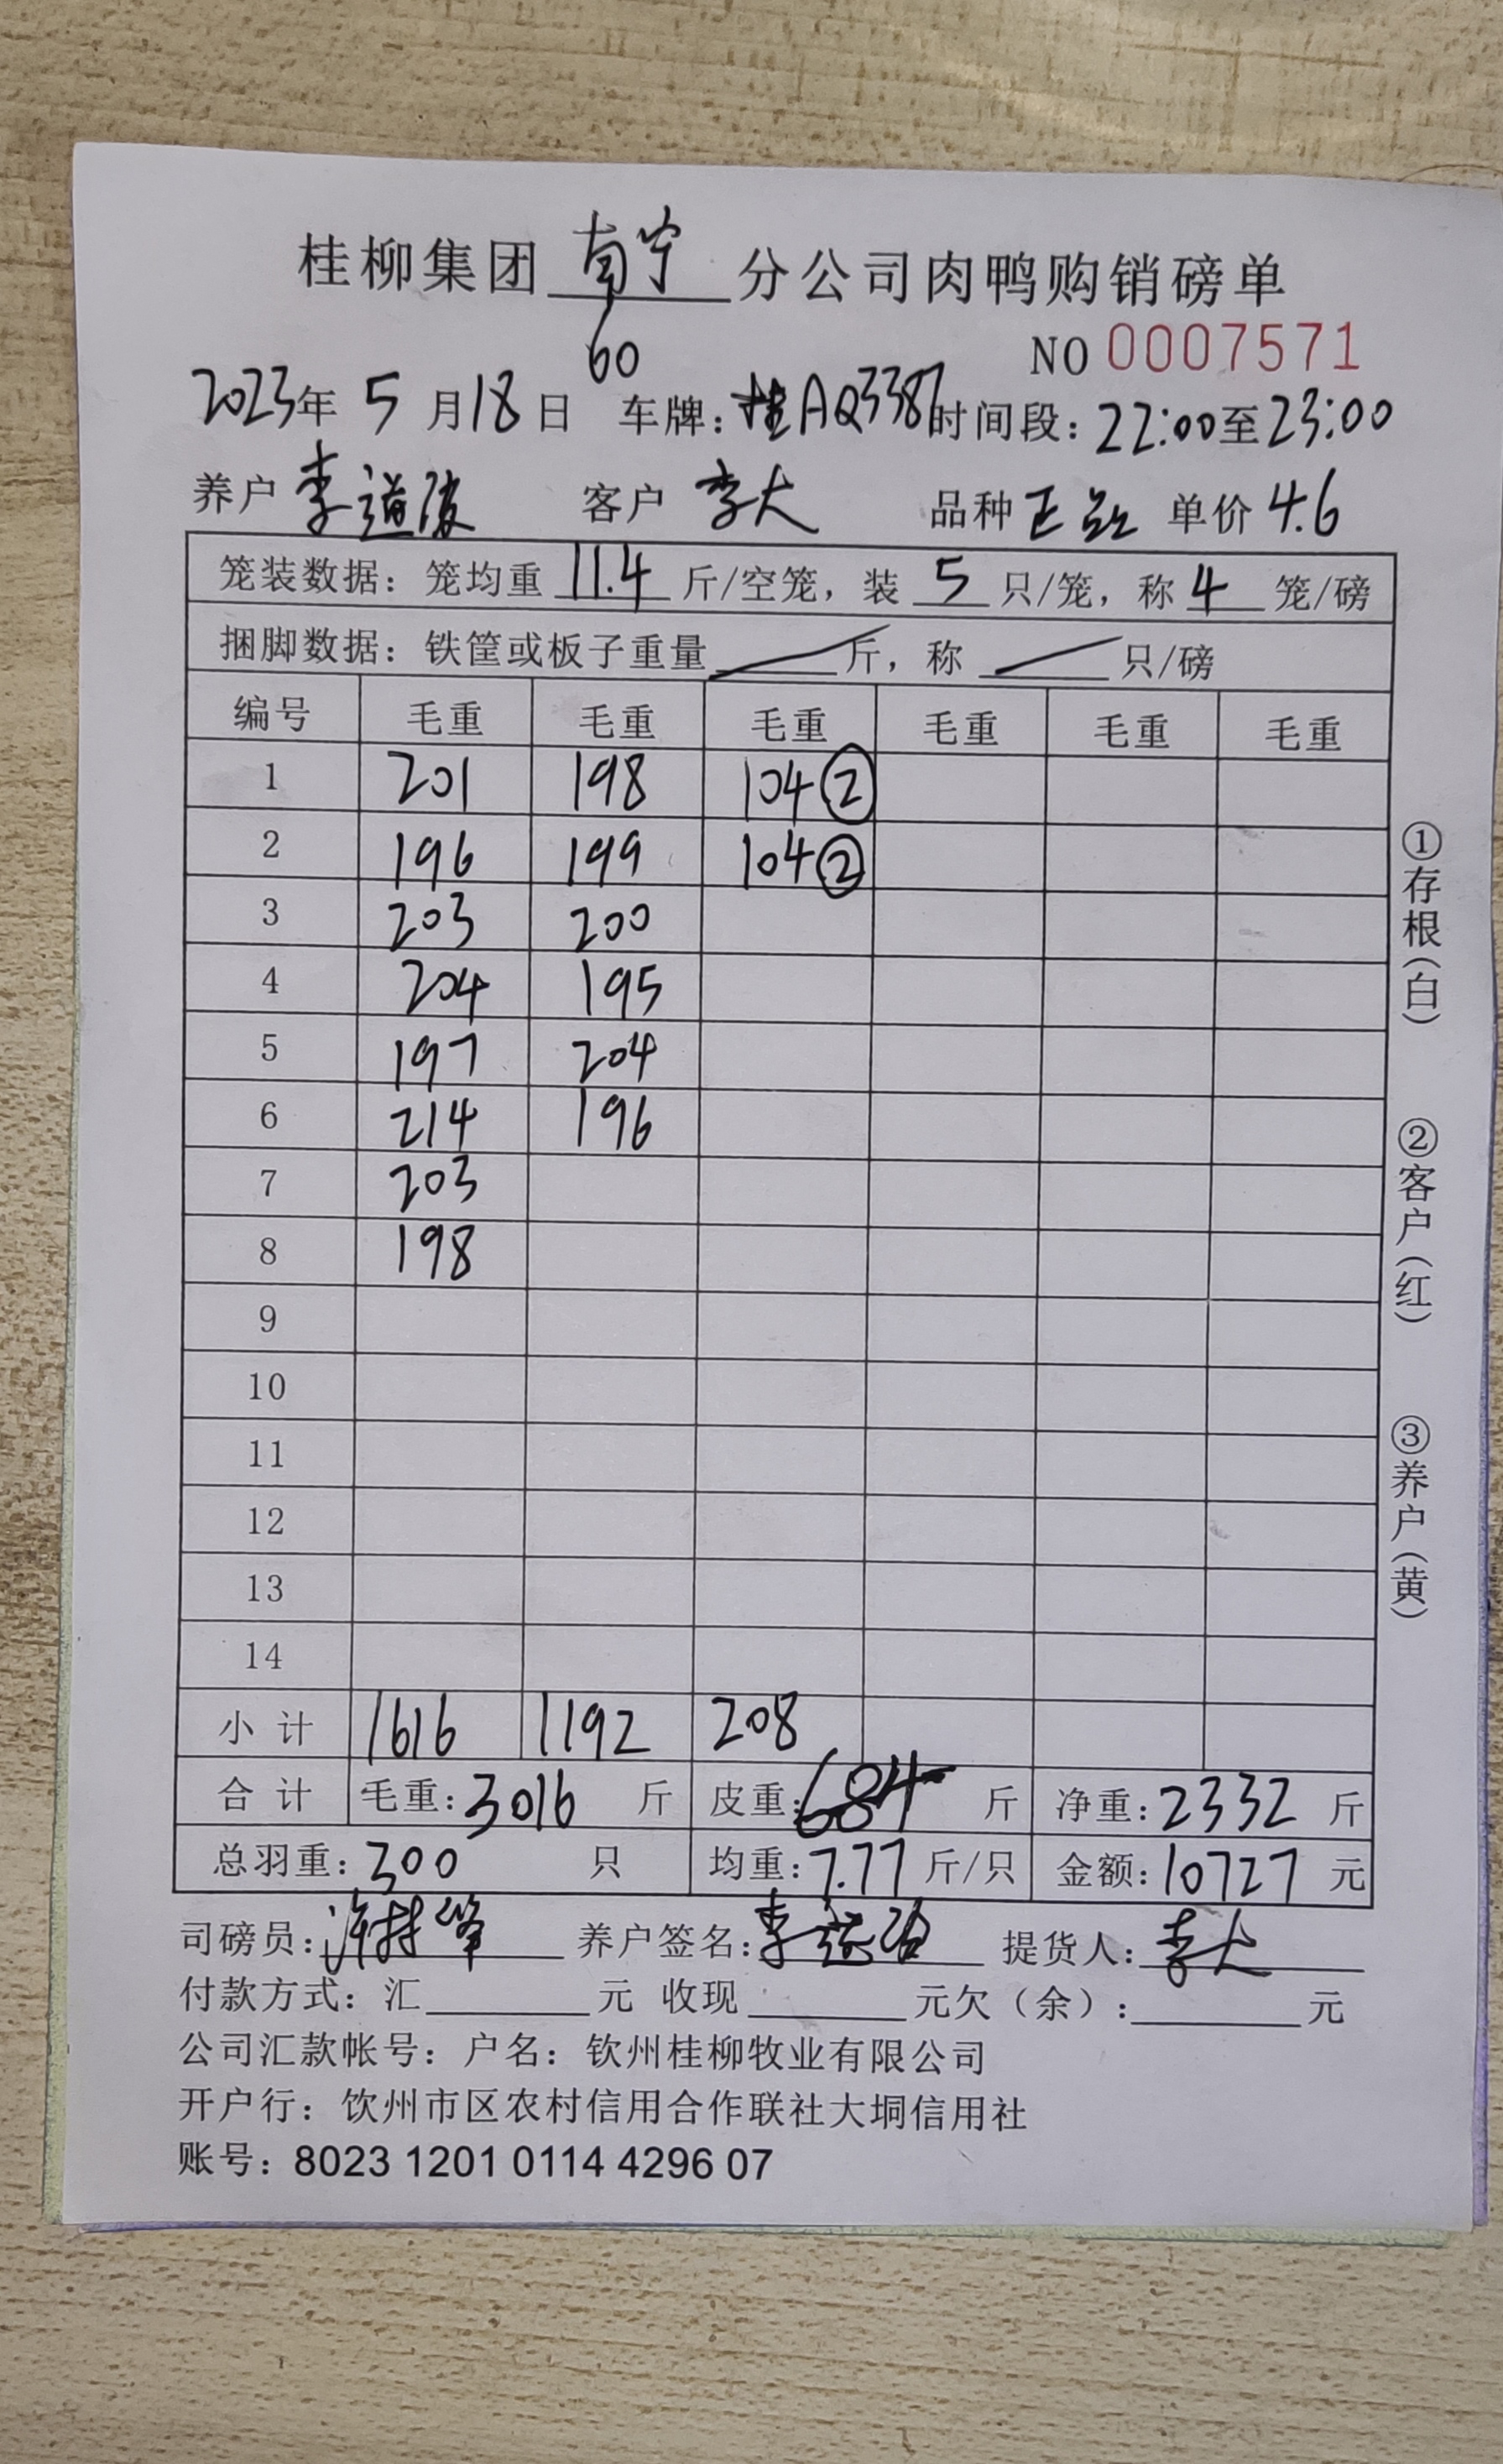 桂柳集团 南宁 分公司肉鸭购销磅单
60
NO 0007571
2023年 5 月 18 日 车牌：桂AQ3387 时间段：22:00至23:00
养户 李道 客户 李大 品种 正 单价 4.6
笼装数据：笼均重 11.4 斤/空笼，装 5 只/笼，称 4 笼/磅
捆脚数据：铁筐或板子重量 斤，称 只/磅
编号 毛重 毛重 毛重 毛重 毛重 毛重
1 201 198 104②
2 196 199 104②
3 203 200
4 204 195
5 197 204
6 214 196
7 203
8 198
9
10
11
12
13
14
小 计 1616 1192 208
合 计 毛重：3016 斤 皮重：684 斤 净重：2332 斤
总羽重：300 只 均重：7.77 斤/只 金额：10727 元
司磅员： 养户签名：李道 提货人：李大
付款方式：汇 元 收现 元欠（余）： 元
公司汇款帐号：户名：钦州桂柳牧业有限公司
开户行：饮州市区农村信用合作联社大垌信用社
账号：8023 1201 0114 4296 07
①存根（白）
②客户（红）
③养户（黄）